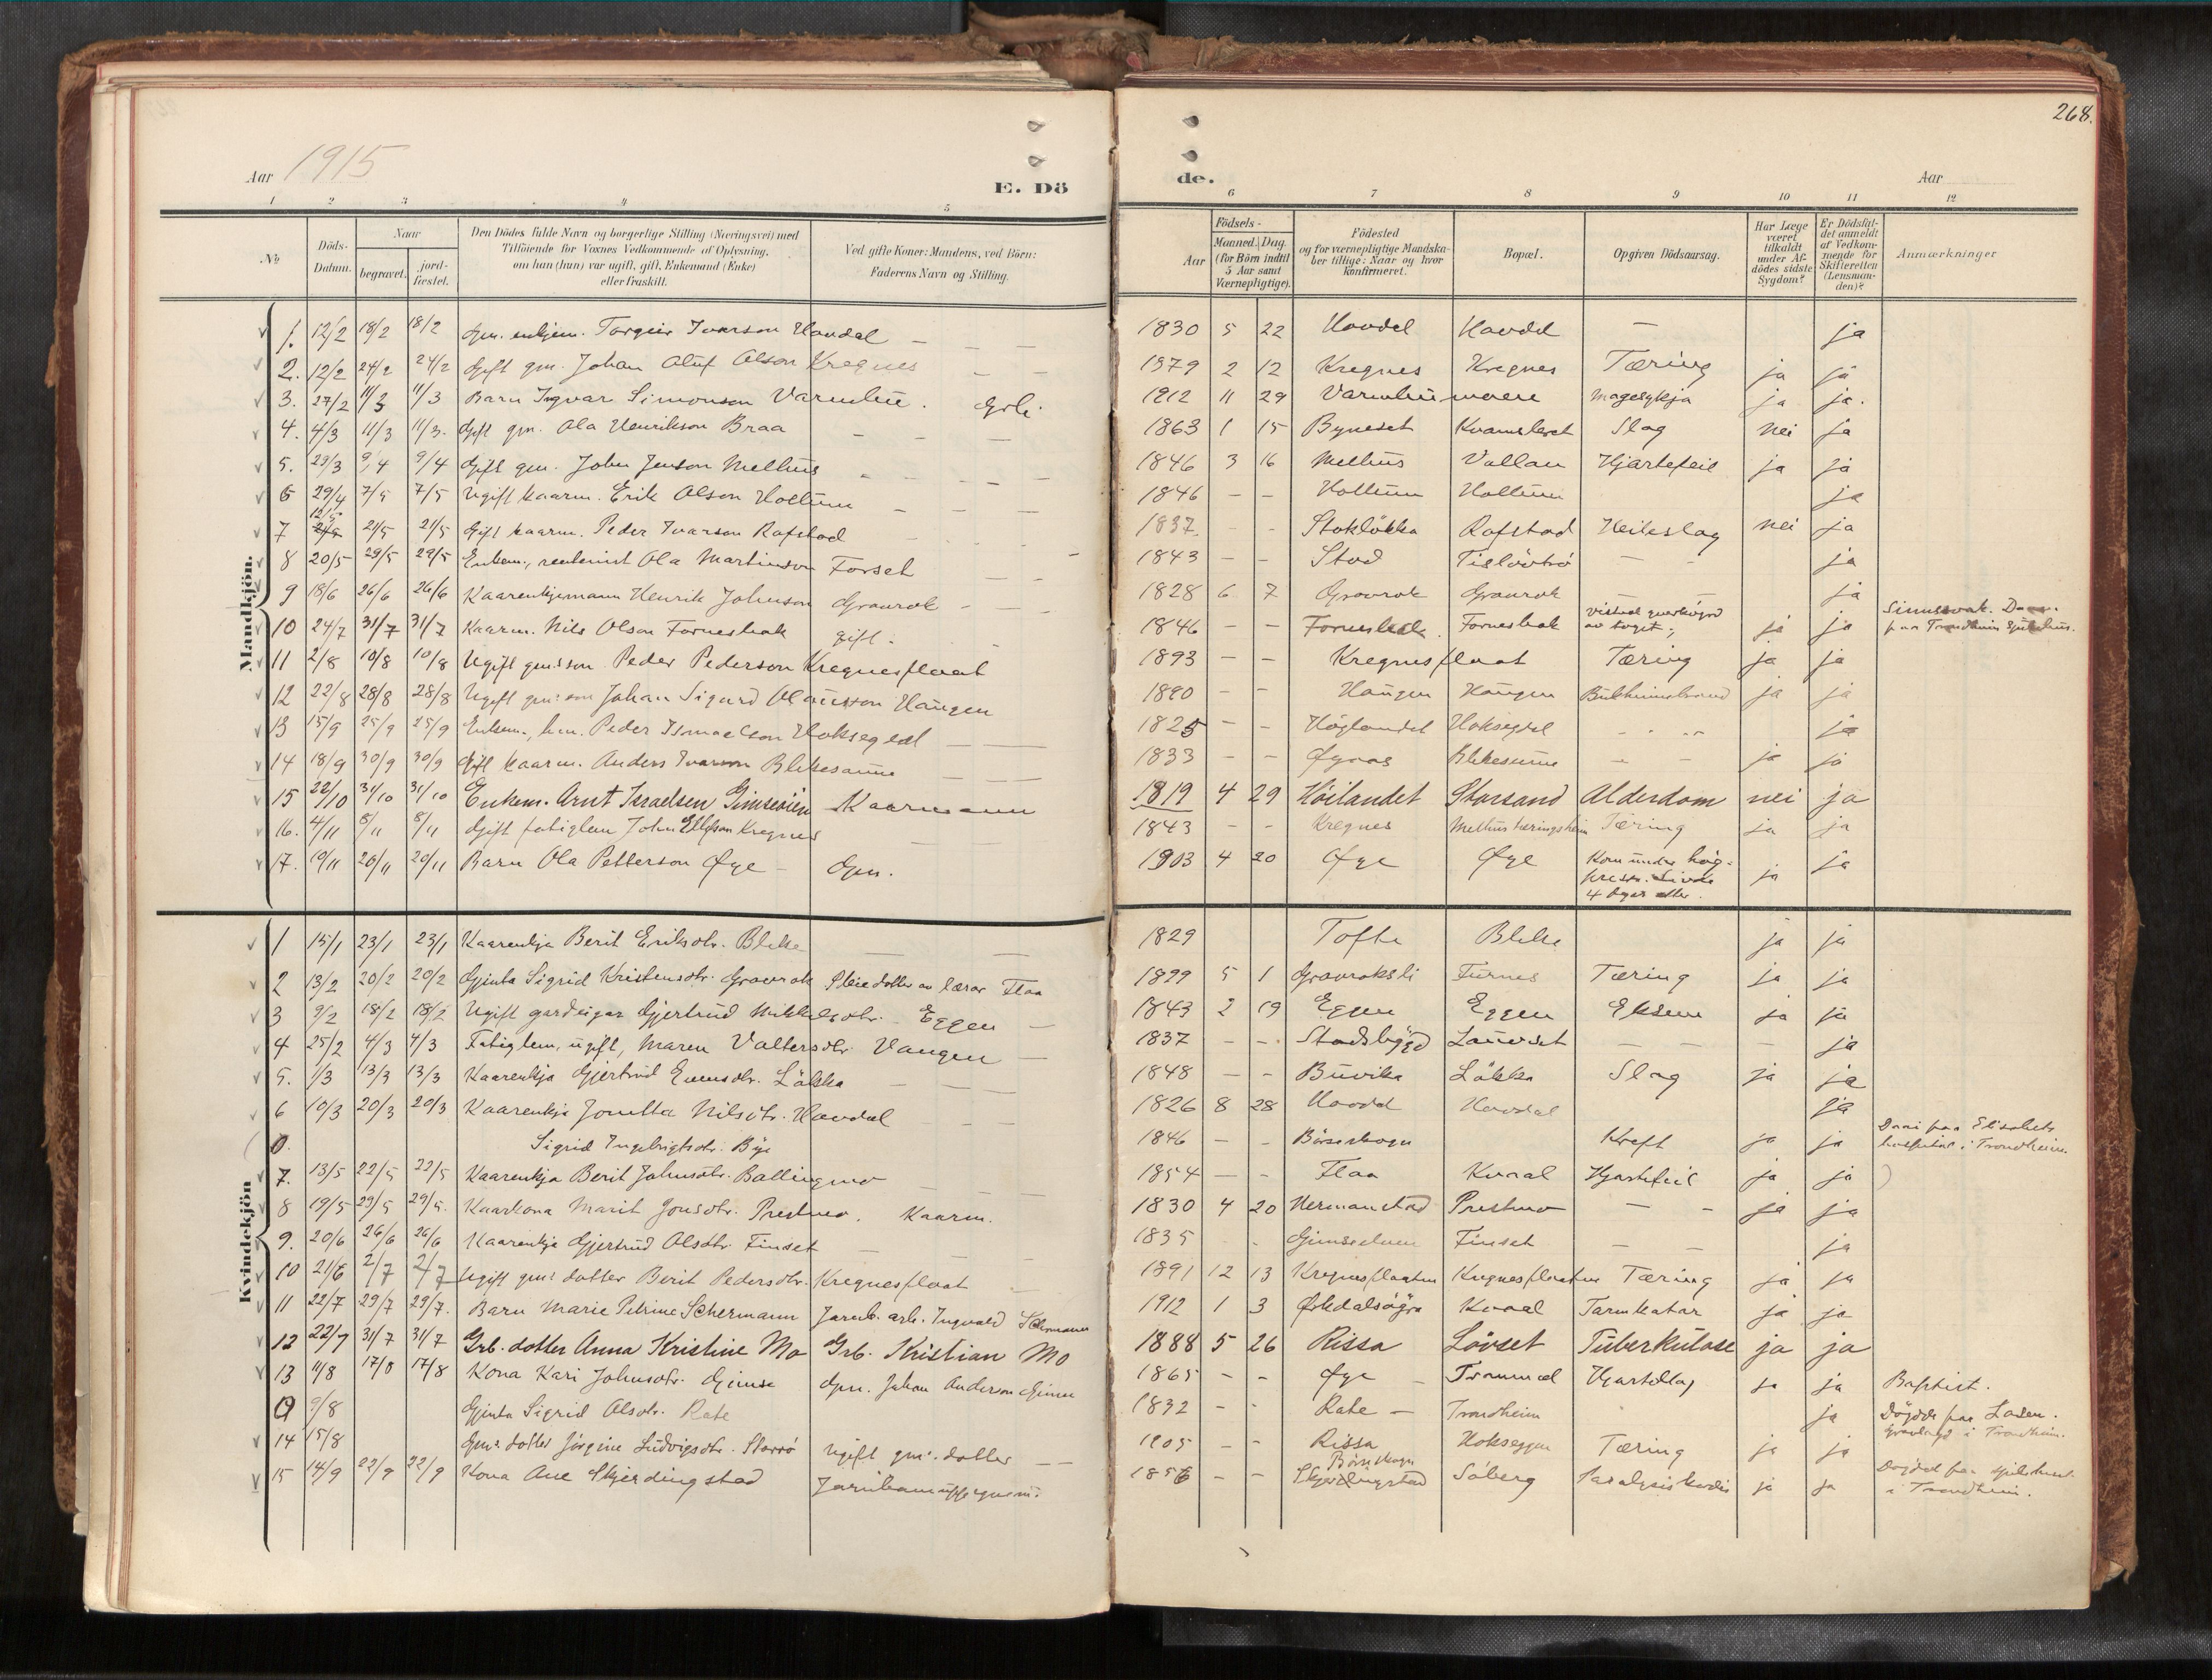 268.
Aar 1915
E. Dö
de.
Aar
1 2 3 4 5
6 7 8 9 10 11 12
№
Döds-Datum.
Naar
begravet.
jord-fæstet.
Den Dödes fulde Navn og borgerlige Stilling (Næringsvei) med
Tilföiende for Voxnes Vedkommende af Oplysning,
om han (hun) var ugift, gift, Enkemand (Enke)
eller fraskilt.
Ved gifte Koner: Mandens, ved Börn:
Faderens Navn og Stilling.
Aar
Födsels-
Maaned. Dag.
(for Börn indtil
5 Aar samt
Værnepligtige).
Födested
og for værnepligtige Mandska-
ber tillige: Naar og hvor
konfirmeret.
Bopæl.
Opgiven Dödsaarsag.
Har Læge
været
tilkaldt
under Af-
dödes sidste
Sygdom?
Er Dödsfal-
det anmeldt
af Vedkom-
mende for
Skifteretten
(Lensman-
den)?
Anmærkninger
Mandkjön.
1. 12/2 18/2 18/2 Gm. enkjem. Torgeir Ivarson Havdal — — — 1830 5 22 Havdal Havdal — ja
2. 12/2 24/2 24/2 Gift gm. Johan Oluf Olson Kregnes — — 1879 2 12 Kregnes Kregnes Tæring ja ja
3. 27/2 11/3 11/3 Barn Ingvar Simonson Varmbu. 1912 11 29 Varmbu- Magesykja ja ja.
4. 4/3 11/3 11/3. Gift gm. Ola Henrikson Braa — — — 1863 1 15 Byneset Slag nei ja
5. 23/3 9/4 9/4 Gift gm. John Jenson Melhus — — — 1846 3 16 Melhus Vollan Hjartefeil ja ja
6 29/4 7/5 7/5 Ugift kaarm. Erik Olson Hollum — — — 1846 — — Hollum Hollum ja
7 12/5 21/5 21/5 Gift kaarm. Peder Ivarson Rafstad 1837 - - Stokløkka Rafstad Heileslag nei ja
8 20/5 29/5 29/5 Enkem., rentenist Ola Martinson Forset — — 1843 — — Stod — ja
9 18/6 26/6 26/6 Kaarenkjemann Henrik Johnson Gravrok — — 1828 6 7 Gravrok Gravrok — — ja
10 24/7 31/7 31/7 Kaarm. Nils Olson Fornesbak gift. 1846 — — Fornesbak. Fornesbak av toget; ja ja
paa Trondheim
11 2/8 10/8 10/8 Ugift gm.s son Peder Pederson Kregnesplaat 1893 — — Kregnesplaat Tæring ja ja
12 22/8 28/8 28/8 Ugift gm: son Johan Sigurd Olausson Haugen 1890 - - Haugen Haugen ja ja
13 15/9 25/9 25/9 Enkem., hm. Peder Ismaelson Hoksegdal — — 1825 — — Høglandet Hoksegdal ja
14 18/9 30/9 30/9 Gift kaarm. Anders Ivarson Blekesaune — — — 1833 — — Øyaas Blekesaune — — ja ja
15 22/10 31/10 31/10 Enkem. Arnt Israelsen Gimseøien Kaarmann 1819 4 29 Höilandet Storsand Alderdom nei ja
16. 4/11 8/11 8/11 Gift fatiglem John Kregnes 1843 - - Kregnes Tæring ja ja
17. 19/11 26/11 26/11 Barn Ola Petterson Øye — Gm. 1903 4 20 Øye Øye Kom under høi- ja ja
4 dager etter.
Kvindekjön
1 15/1 23/1 23/1 Kaarenkja Berit Eriksdtr. Bleke — — 1829 Tofte Bleke ja ja
2 13/2 20/2 20/2 Gjenta Sigrid Kristensdtr. Gravrok Pleiedotter av lærar Flaa 1899 5 1 Gravroksli Furnes Tæring ja ja
3 9/2 18/2 18/2 Ugift gardeigar Gjertrud Mikkelsdtr. Eggen — 1843 2 19 Eggen Eggen Eksem ja ja
4 25/2 4/3 4/3 Fatiglem, ugift, Maren Valtersdtr. Vangen — 1837 — — Stadsbygd — — — ja
5. 1/3 13/3 13/3 Kaarenkja Gjertrud Evensdtr. Løkka — — 1848 — — Buvika Løkka Slag ja ja
6 10/3 20/3 20/3 Kaarenkje Jonetta Nilsdtr. Havdal — — 1826 8 28 Havdal Havdal ja
0. Sigrid Ingebrigtsdtr. Bye 1846 — — Børseskogn Kreft ja ja
paa Elisabets
hospital i Trondheim.
7. 13/5 22/5 22/5 Kaarenkja Berit Johnsdtr. Ballingmo — — 1854 — — Flaa Kvaal Hjartefeil ja ja
8 19/5 29/5 29/5. Kaarkona Marit Jonsdtr. Prestmo. Kaarm. 1830 4 20 Hermanstad Prestmo — — ja ja
9. 20/6 26/6 26/6 Kaarenkja Gjertrud Olsdtr. Finset — — 1835 - - Finset — — ja
10 21/6 2/7 2/7 Ugift gm: dotter Berit Pedersdtr. Kregnesplaat 1891 12 13 Kregnesplaaten Kregnesplaaten Tæring ja ja
11 22/7 29/7 29/7. Barn Marie Petrine Schermann Jarnb. arb. Ingvald Schermann 1912 1 3 Orkedalsøyra Kvaal Tarmkatar ja ja
12 22/7 31/7 31/7 Grb. dotter Anna Kristine Mo Grb. Kristian Mo 1888 5 26 Rissa Lövset Tuberkulose ja ja
13 11/8 17/8 17/8 Kona Kari Johnsdtr. Gimse Gm. Johan Anderson Gimse 1865 — — Øye — Hjarteslag ja ja Baptist.
0 9/8 Gjenta Sigrid Olsdtr. Rate 1832 - - Rate — Trondheim ja
Døydde paa
Gravlagd i Trondheim.
14 15/8 Gm: dotter Jørgine Ludvigsdtr. Storrø Ugift gm: dotter — — 1905 — — Rissa Hokseggen Tæring ja ja
15 14/9 22/9 22/9 Kona Ane Skjerdingstad 1856 — — Børseskogn
Skjerdingstad Søberg ja ja
i Trondheim.